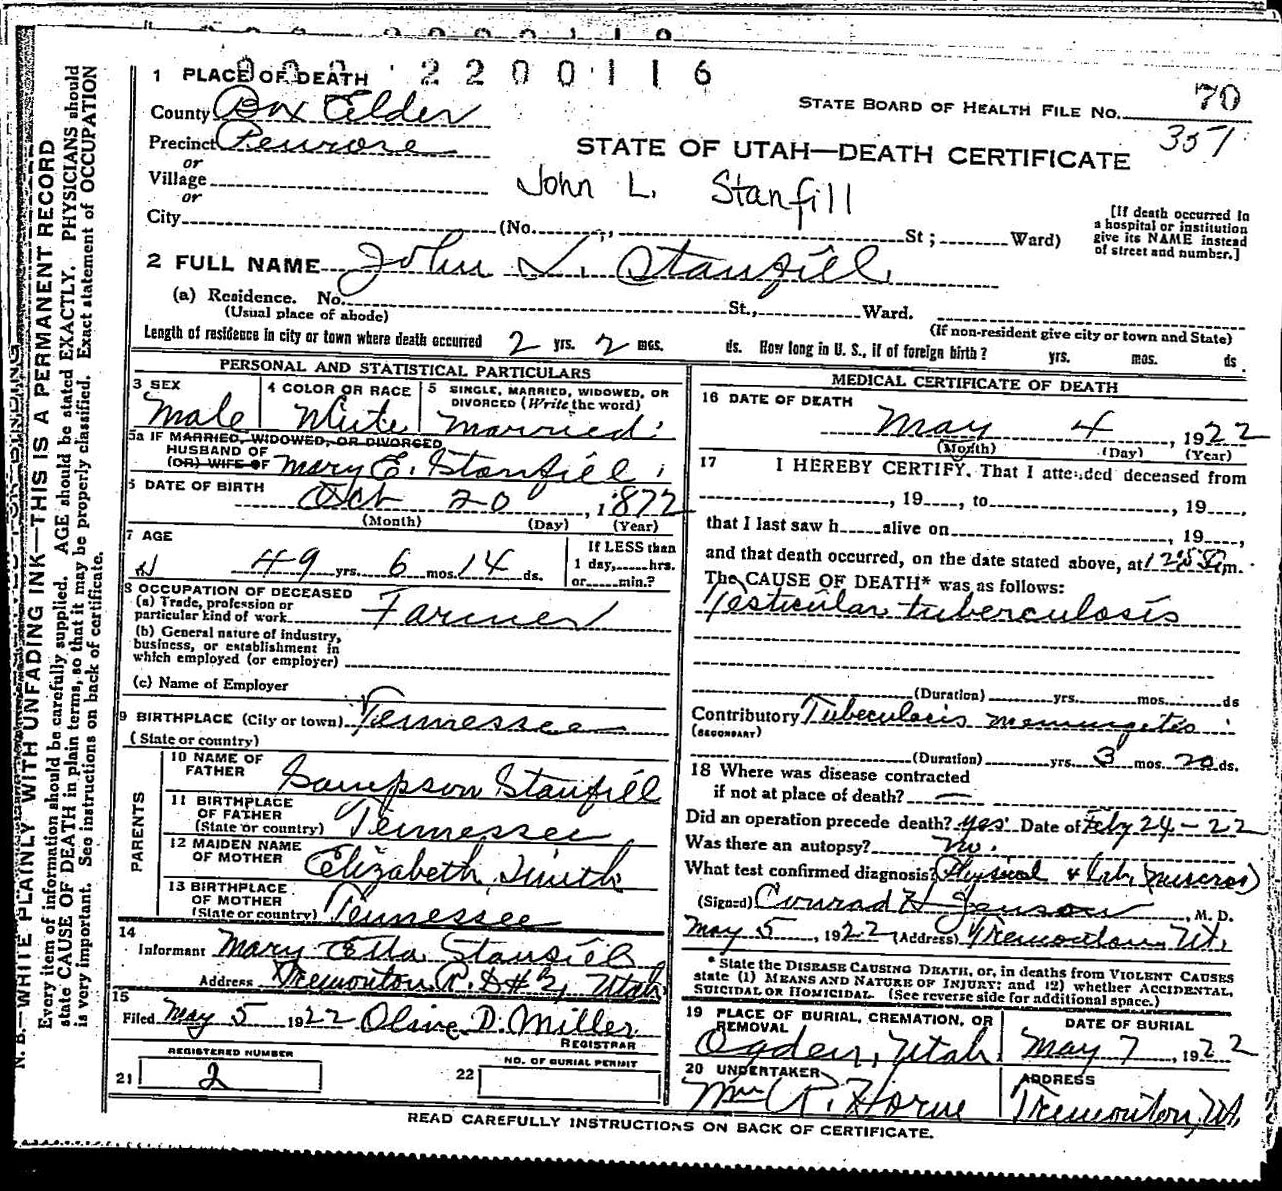 2200116
1 PLACE OF DEATH
STATE BOARD OF HEALTH FILE NO. 70
357
County Box Elder
Precinct Penrose
STATE OF UTAH—DEATH CERTIFICATE
or
Village
John L. Stanfill
or
City (No. St ; Ward)
[If death occurred in
a hospital or institution
give its NAME instead
of street and number.]
2 FULL NAME John L. Stanfill
(a) Residence. No. St., Ward.
(Usual place of abode)
(If non-resident give city or town and State)
Length of residence in city or town where death occurred 2 yrs. 2 mos. ds. How long in U. S., if of foreign birth? yrs. mos. ds.
PERSONAL AND STATISTICAL PARTICULARS
3 SEX
Male
4 COLOR OR RACE
White
5 SINGLE, MARRIED, WIDOWED, OR
DIVORCED (Write the word)
Married
5a IF MARRIED, WIDOWED, OR DIVORCED
HUSBAND OF
(OR) WIFE OF Mary E. Stanfill
6 DATE OF BIRTH
Oct 20, 1872
(Month) (Day) (Year)
7 AGE
49 yrs. 6 mos. 14 ds.
If LESS than
1 day, hrs.
or min.?
8 OCCUPATION OF DECEASED
(a) Trade, profession or
particular kind of work Farmer
(b) General nature of industry,
business, or establishment in
which employed (or employer)
(c) Name of Employer
9 BIRTHPLACE (City or town) Tennessee
(State or country)
PARENTS
10 NAME OF
FATHER Sampson Stanfill
11 BIRTHPLACE
OF FATHER
(State or country) Tennessee
12 MAIDEN NAME
OF MOTHER Elizabeth Smith
13 BIRTHPLACE
OF MOTHER
(State or country) Tennessee
14
Informant Mary Etta Stanfill
Address Tremonton R.D#2, Utah
15
Filed May 5 1922 Olive D. Miller
REGISTRAR
REGISTERED NUMBER
21 2
NO. OF BURIAL PERMIT
22
MEDICAL CERTIFICATE OF DEATH
16 DATE OF DEATH
May 4, 1922
(Month) (Day) (Year)
17 I HEREBY CERTIFY, That I attended deceased from
, 19 , to 19 ,
that I last saw h alive on , 19 ,
and that death occurred, on the date stated above, at m.
The CAUSE OF DEATH* was as follows:
Testicular tuberculosis
(Duration) yrs. mos. ds
Contributory Tubeculosis memingetis
(SECONDARY)
(Duration) yrs. 3 mos. 20 ds.
18 Where was disease contracted
if not at place of death? —
Did an operation precede death? yes Date of Feby 24-22
Was there an autopsy? no.
What test confirmed diagnosis? Physical & Lab.
(Signed) Conrad H Jenson, M. D.
May 5, 1922 (Address) Tremonton Ut.
* State the DISEASE CAUSING DEATH, or, in deaths from VIOLENT CAUSES
state (1) MEANS AND NATURE OF INJURY; and (2) whether ACCIDENTAL,
SUICIDAL OR HOMICIDAL. (See reverse side for additional space.)
19 PLACE OF BURIAL, CREMATION, OR
REMOVAL
Ogden, Utah
DATE OF BURIAL
May 7, 1922
20 UNDERTAKER
Wm R. Horne
ADDRESS
Tremonton, Ut.
READ CAREFULLY INSTRUCTIONS ON BACK OF CERTIFICATE.
N. B.—WRITE PLAINLY WITH UNFADING INK—THIS IS A PERMANENT RECORD
Every item of information should be carefully supplied. AGE should be stated EXACTLY. PHYSICIANS should
state CAUSE OF DEATH in plain terms, so that it may be properly classified. Exact statement of OCCUPATION
is very important. See instructions on back of certificate.